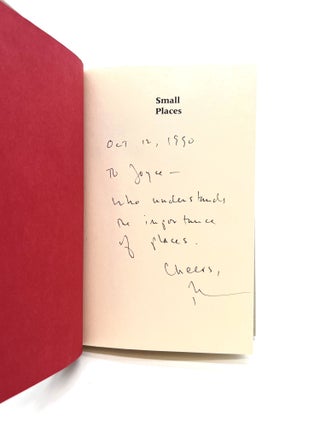 Small
Places
Oct 12, 1990
To Joyce —
who understands
the importance
of places.
Cheers,